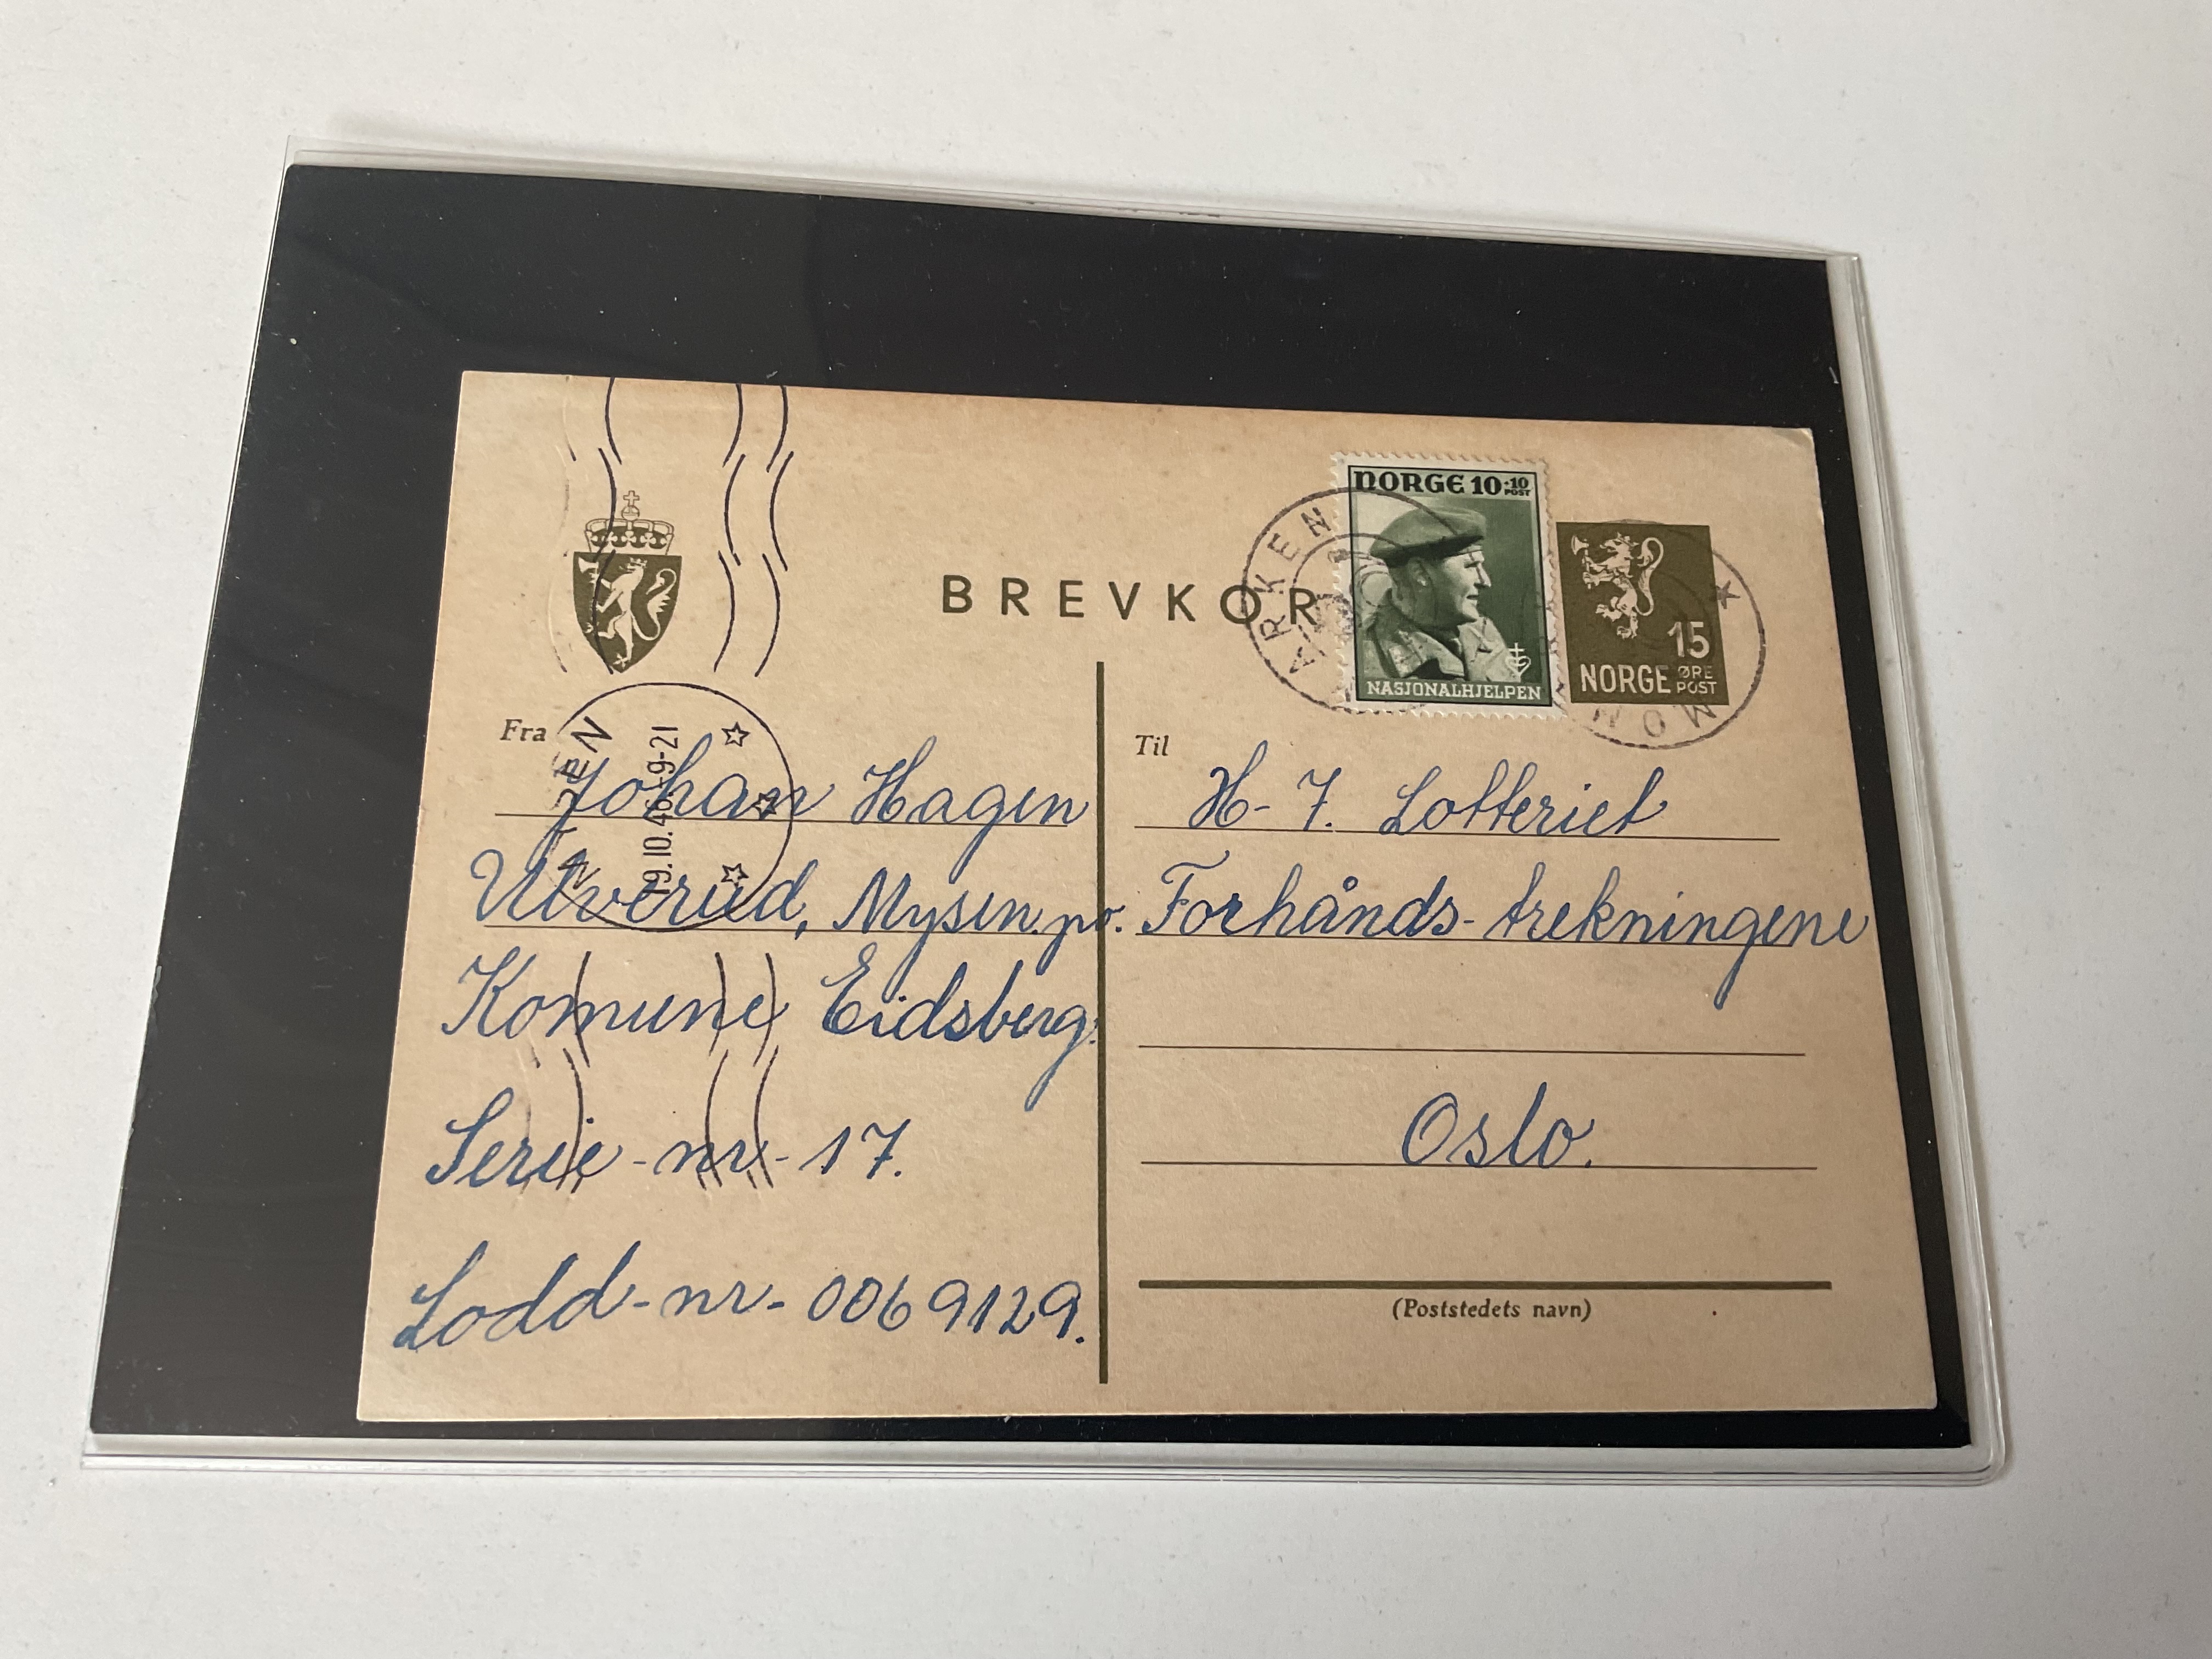 BREVKOR
NORGE 10+10
POST
NASJONALHJELPEN
15
NORGE ØRE
POST
MOM ARKEN
19.10.46.-9-21
Fra
Johan Hagen
Ulverud, Mysen po.
Komune Eidsberg.
Serie-nr-17.
Lodd-nr-0069129.
Til
H-7. Lotteriet
Forhånds-trekningene
Oslo.
(Poststedets navn)